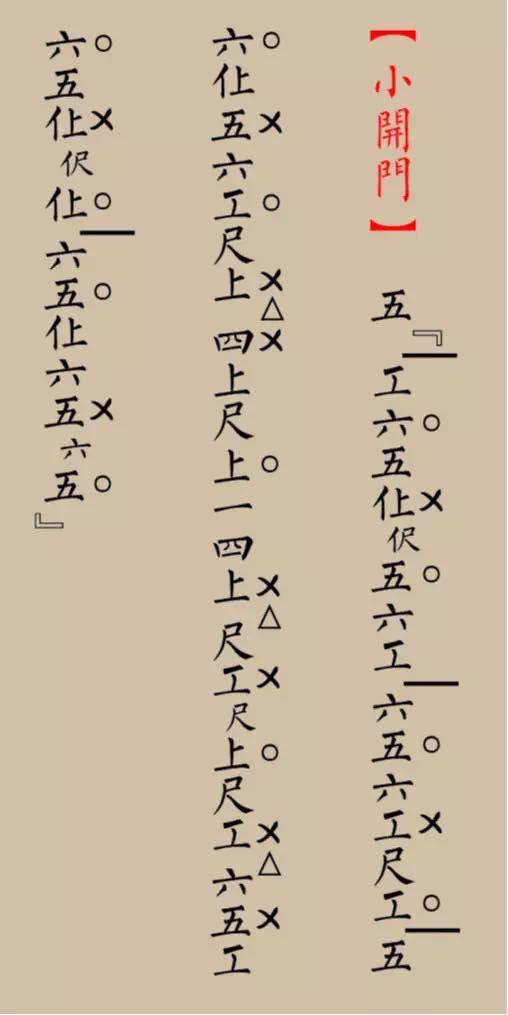 【小開門】 五『工六○五仩✕伬五○六工六五○六工✕尺工○五
六○仩五✕六工○尺上✕△四✕上尺上○一四上✕△尺工✕尺上○尺工✕△六五✕工
六○五仩✕伬仩○六五○仩六五✕六五○』